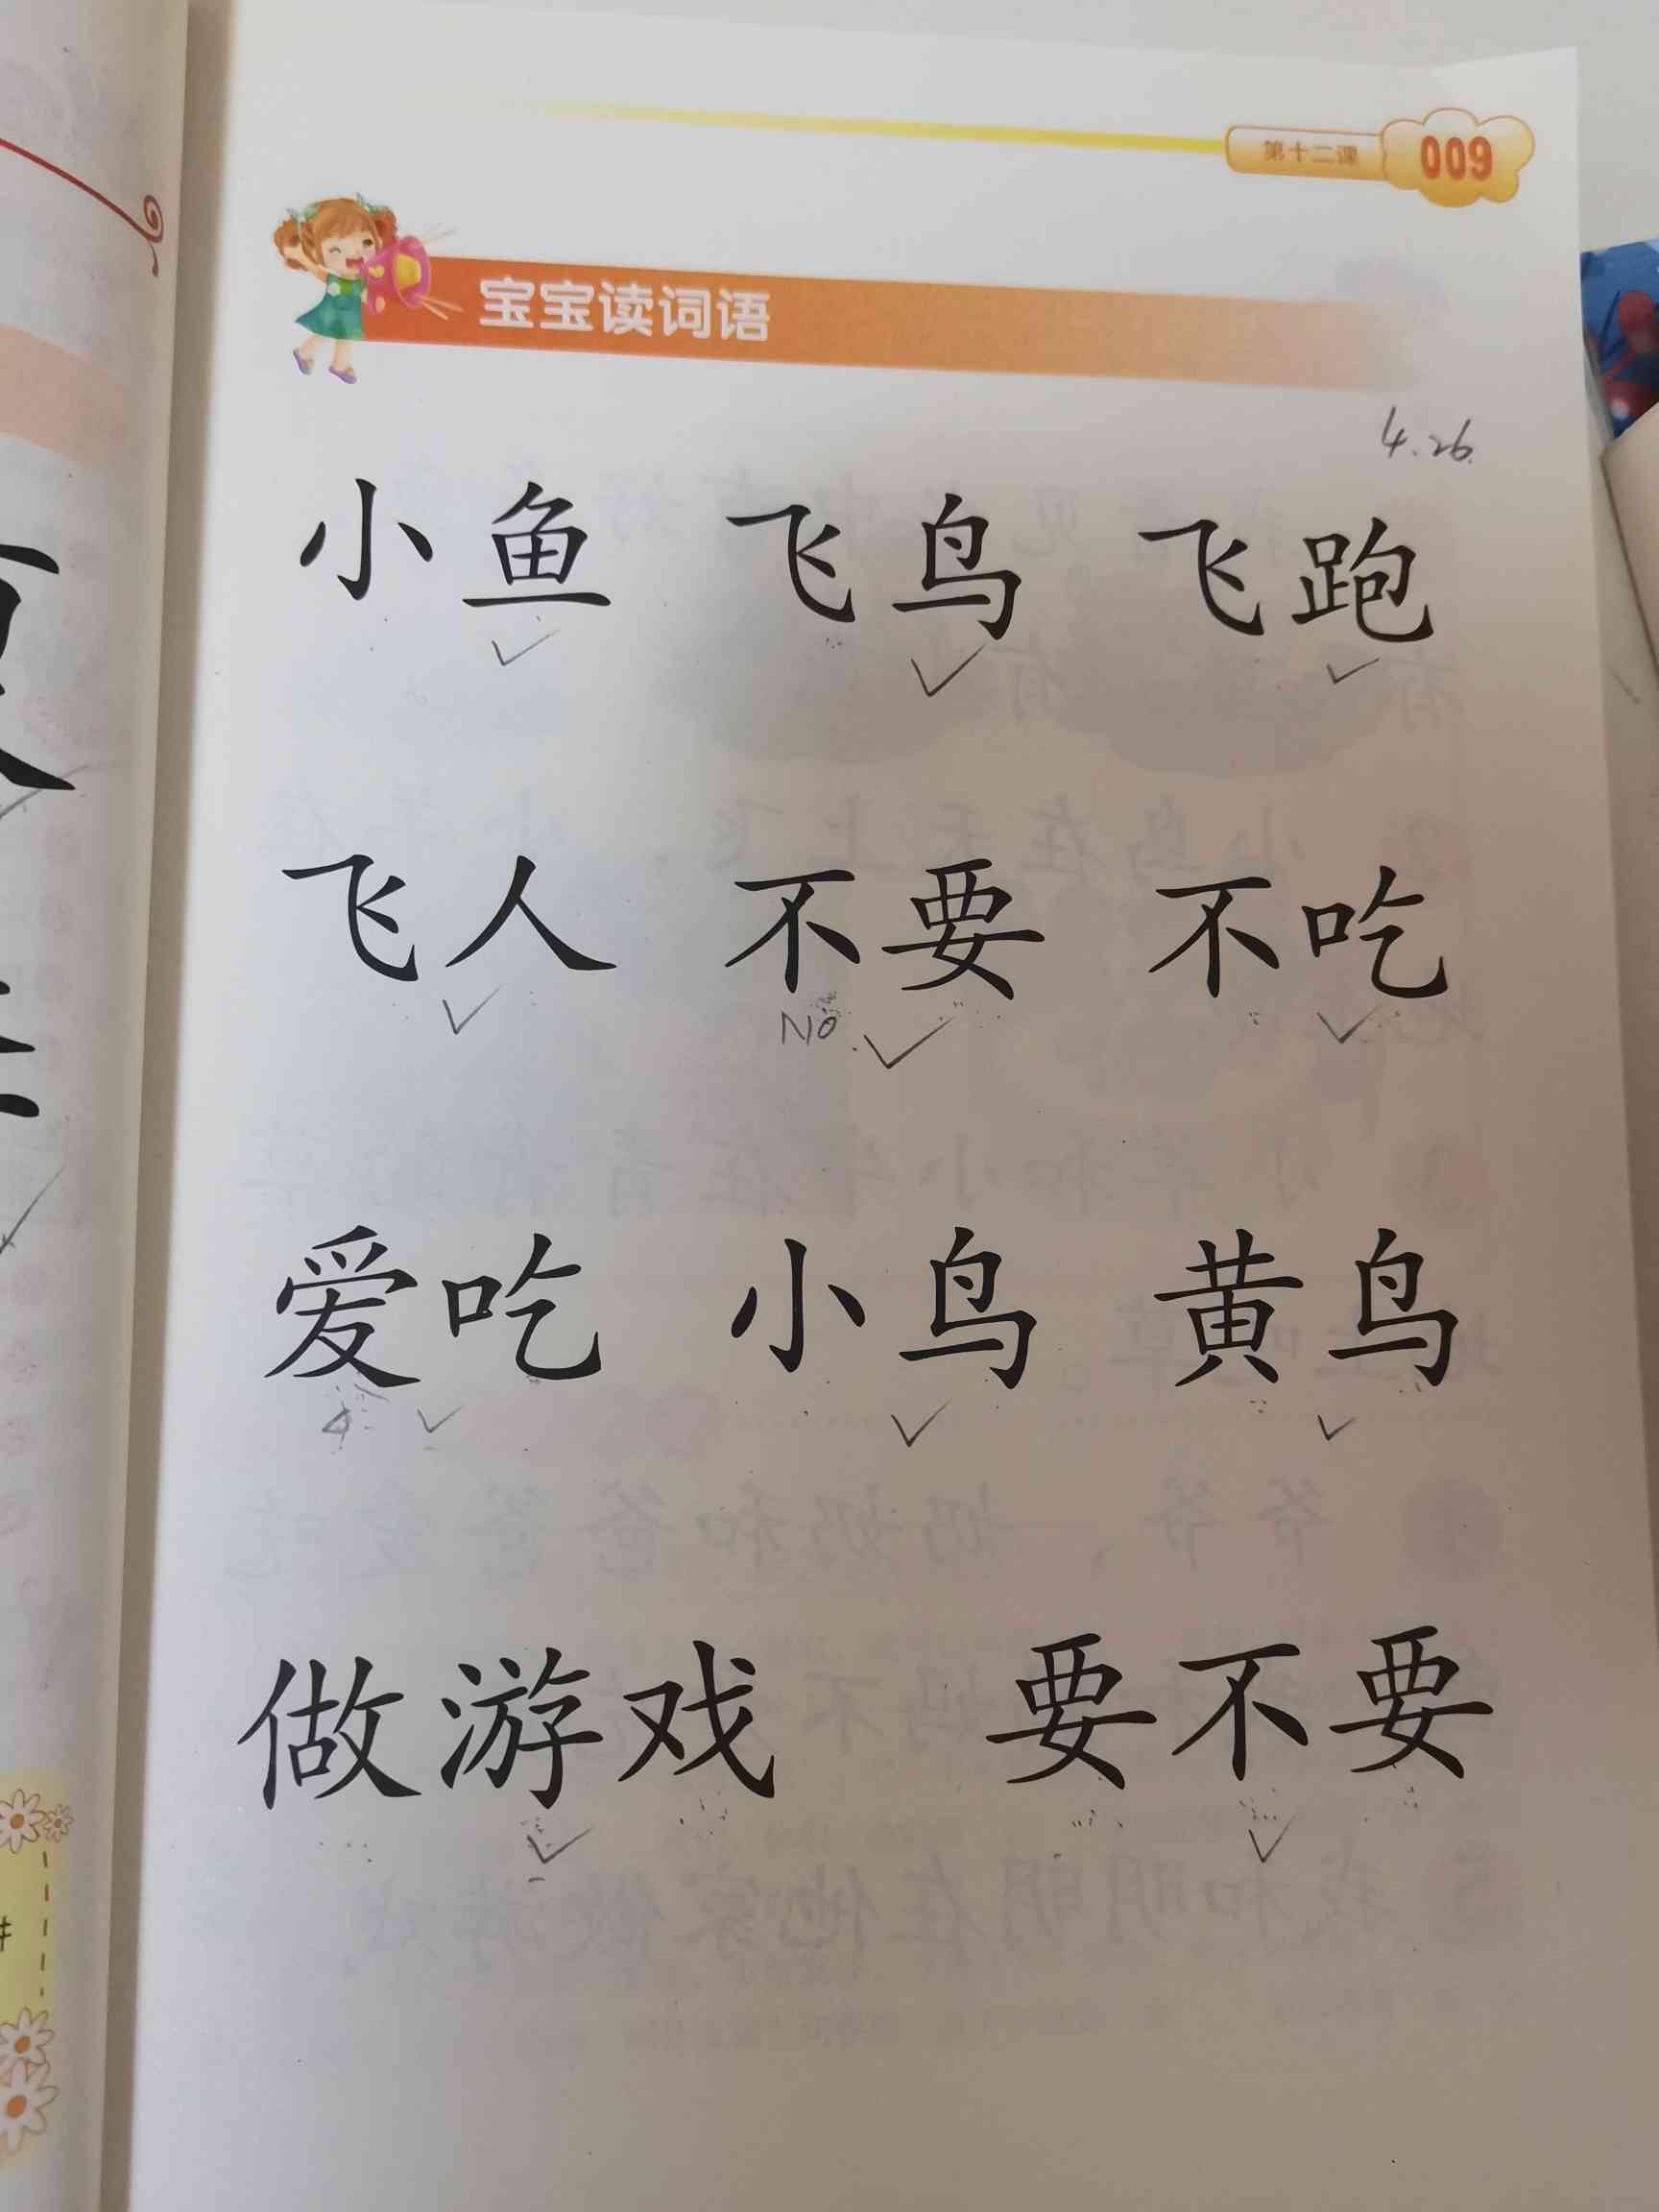 第十二课 009
宝宝读词语
4.26.
小鱼 飞鸟 飞跑
飞人 不要 不吃
No
爱吃 小鸟 黄鸟
做游戏 要不要